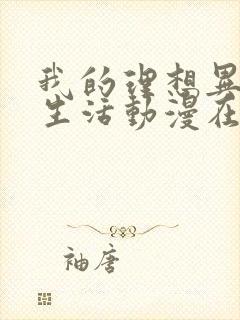 我的理想異
生活動漫在
袖唐